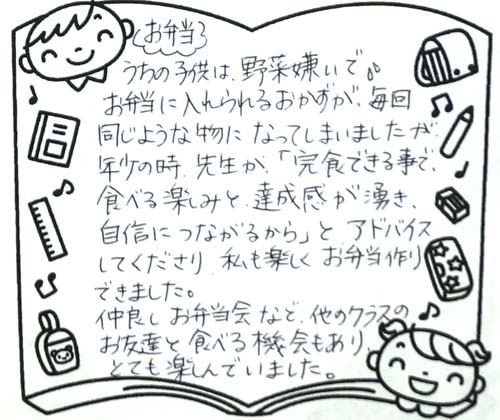 お弁当
うちの子供は、野菜嫌いで。
お弁当に入れられるおかずが、毎回
同じような物になってしまいましたが、
年少の時、先生が、「完食できる事で、
食べる楽しみと、達成感が湧き、
自信につながるから」と アドバイス
してくださり、私も楽しくお弁当作り
できました。
仲良しお弁当会など、他のクラスの
お友達と食べる機会もあり、
とても楽しんでいました。